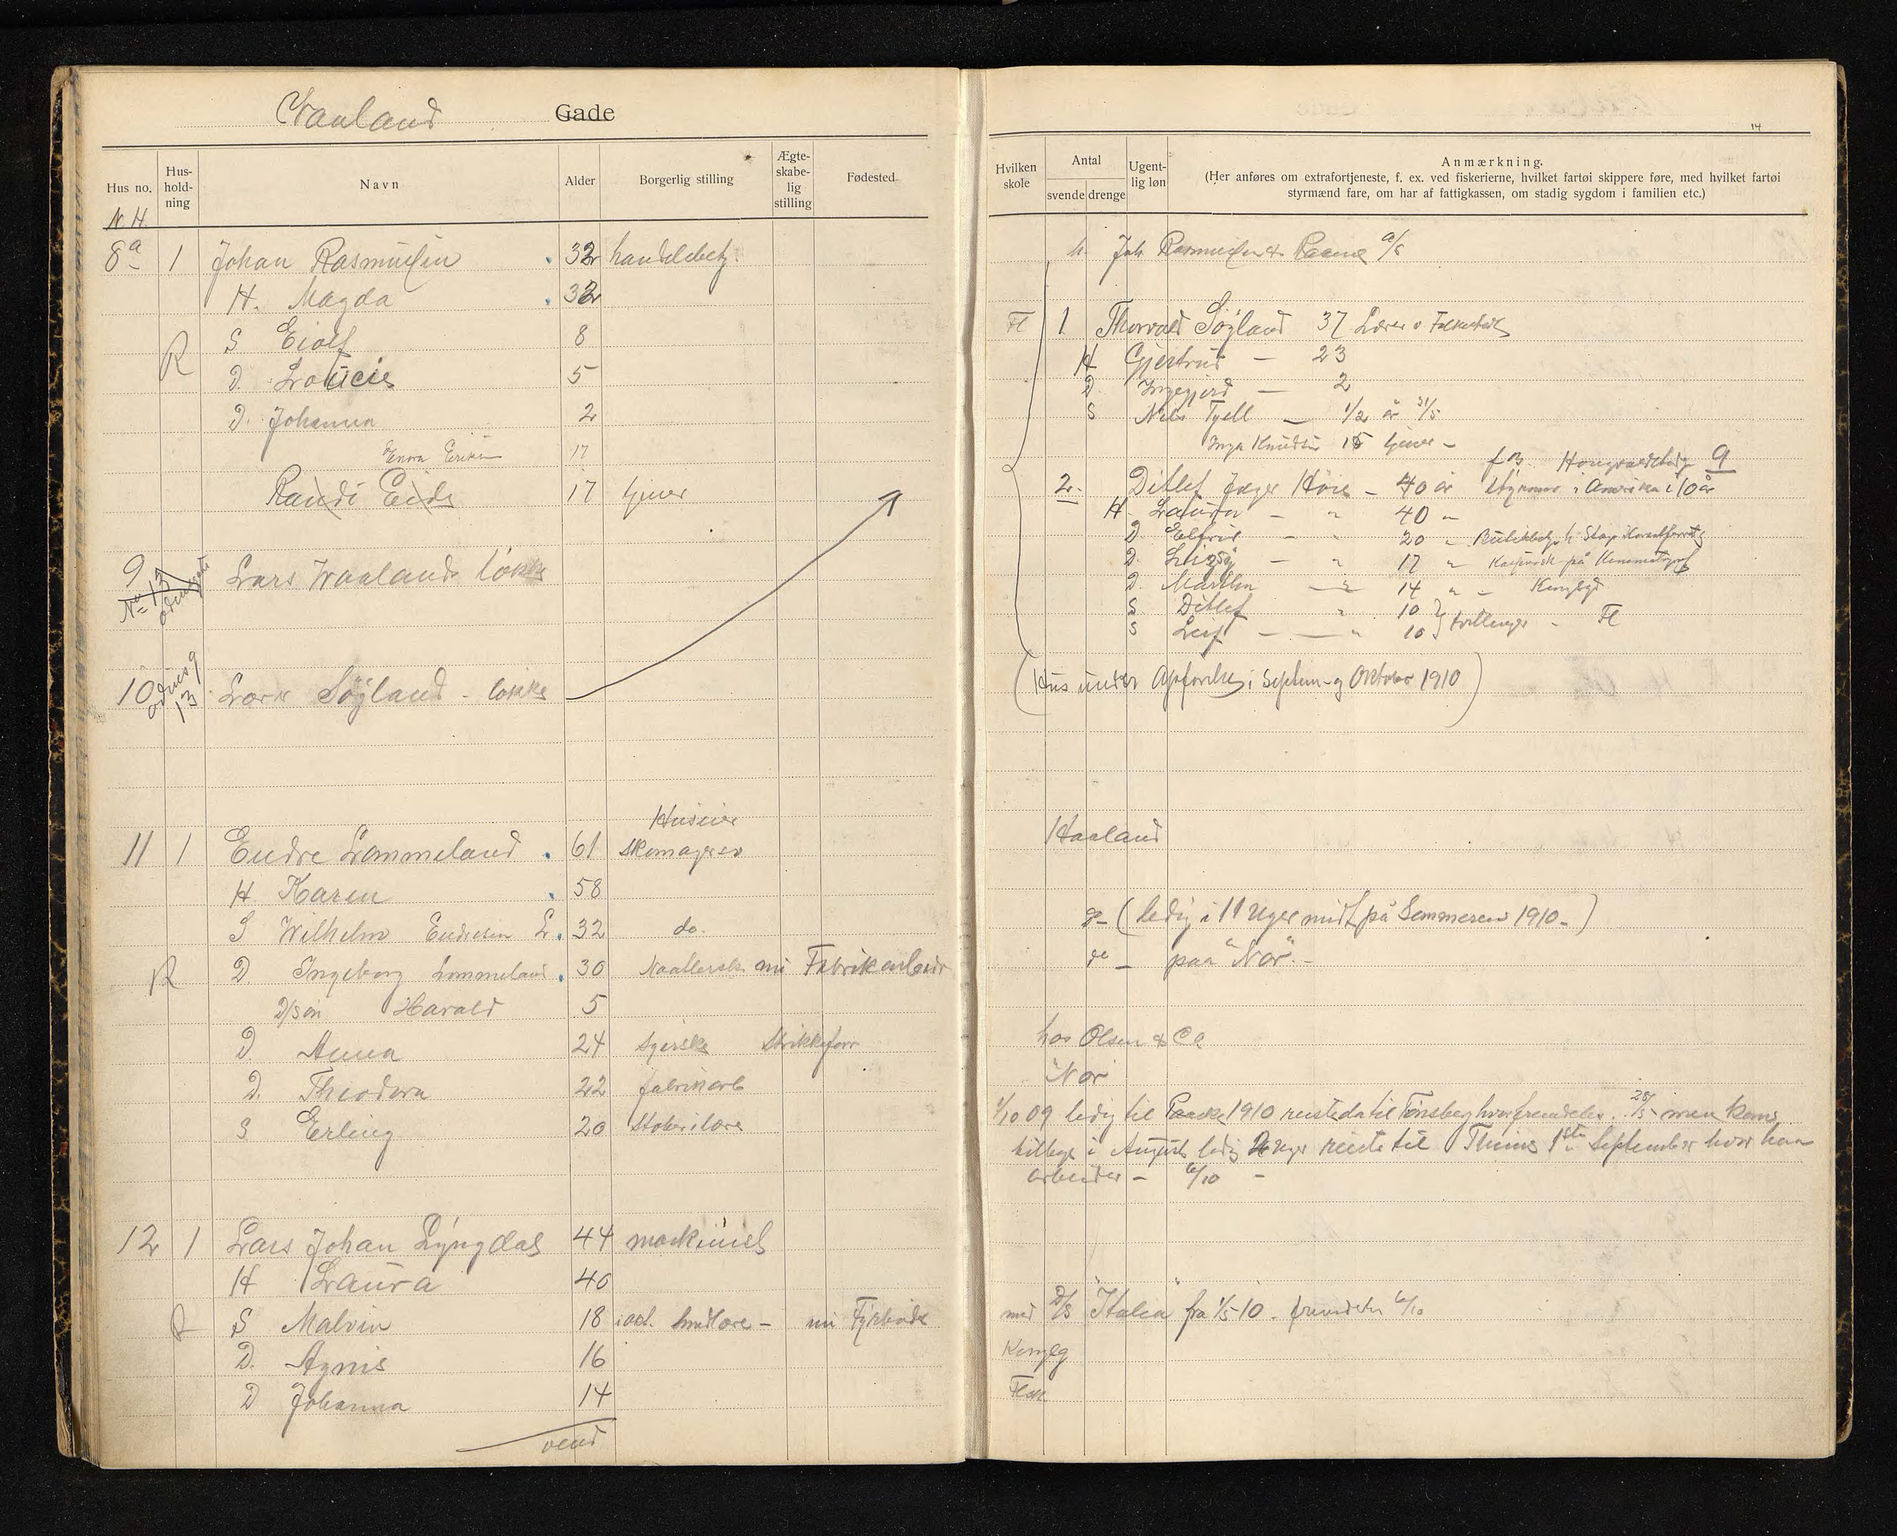 Vaaland Gade
Hus no. Hus-hold-ning Navn Alder Borgerlig stilling Ægte-skabe-lig stilling Fødested
N. H.
8a 1 Johan Rasmussen 32 handelsbetj.
H. Magda 32
S Eiolf 8
R D. 5
D. Johanna 2
Enna Eriksen 17
Randi Eide 17 tjener
9 Lars Waaland løkke
No 13
10 Lars Søyland - løkke
13
Huseier
11 1 Endre Lommeland 61 Skomager
H Karen 58
S Wilhelm Endresen L. 32 do.
R D Ingeborg Lommeland 30 nu Fabrikarbeide
D/søn Harald 5
D Anna 24 Syerske Strikkeforr
D. Theodora 22 fabrikarb
S Erling 20
12 1 Lars Johan Lyngdal 44 maskinist
H Laura 40
R S Malvin 18 nu Fyrbøder
D. Agnis 16
D Johanna 14
vend
14
Hvilken skole Antal svende drenge Ugent-lig løn Anmærkning.
(Her anføres om extrafortjeneste, f. ex. ved fiskerierne, hvilket fartøi skippere føre, med hvilket fartøi
styrmænd fare, om har af fattigkassen, om stadig sygdom i familien etc.)
h. Joh Rasmussen & Raane a/s
Fl 1 Thorvald Søyland 37 Lærer v Folkeskol
H Gjertrud — 23
D. Ingegjerd — 2
S Nils Tjell — 1/2 år 31/5
Inga Knudsen 15 tjener -
9
2. Ditlef Jæger Høie - 40 år i Amerika i 10 år
H. Laura - " 40 "
D Elfrid - " 20 "
D. - " 17 " på Kinematograf
D. Marthe 14 " - Kongsgd
S Ditlef " 10
S Leif — " 10 } tvillinger - Fl
(Hus under Opførelse i Septem- og Oktober 1910)
Haaland
do - (ledig i 11 Uger midt på Sommeren 1910 -)
do - paa "Nor" -
hos Olsen & Co
"Nor
1/10 09 ledig til Paaske 1910 reiste da til Tønsberg hvor fremdeles. 28/5 - men kom
tilbage i August ledig 2 uger reiste til 1ste September hvor han
arbeider - 6/10 -
med D/S "Italia" fra 1/5 10. fremdeles 6/10
Kongsg
Flsk